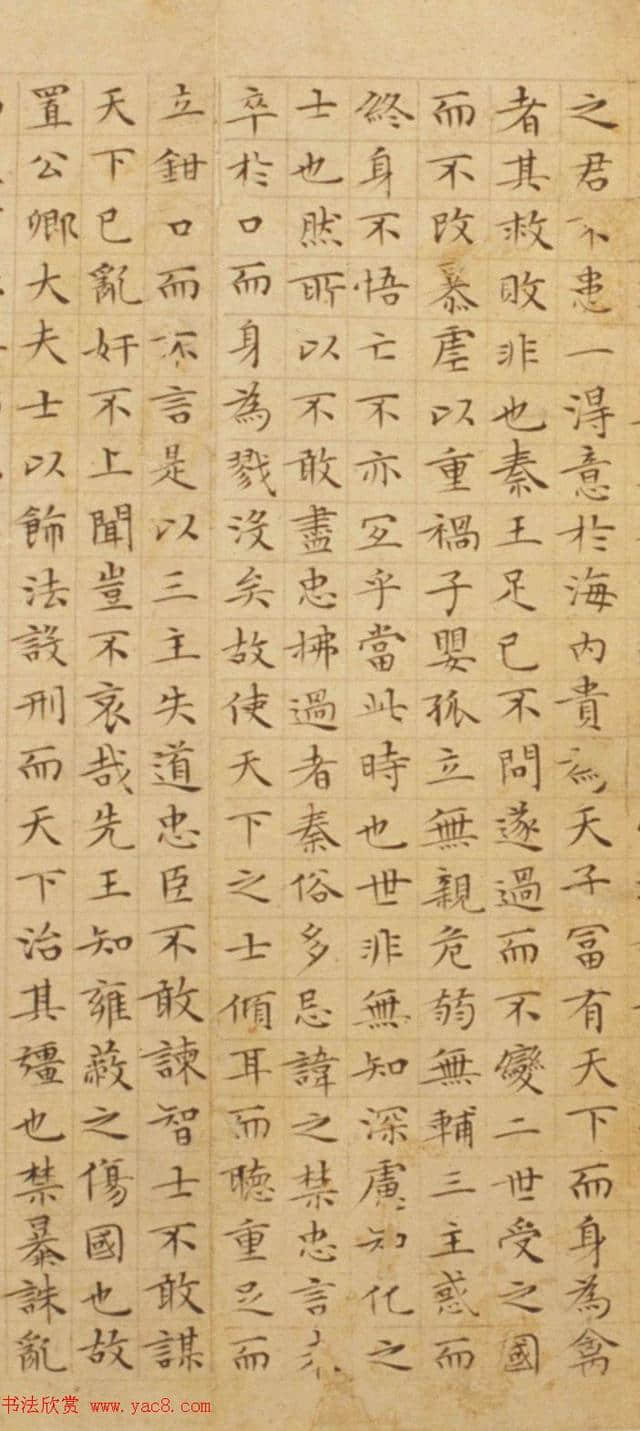 之君不患一淂意於海内貴為天子冨有天下而身為禽
者其救敗非也秦王足已不問遂過而不變二世受之因
而不改暴虐以重禍子嬰孤立無親危弱無輔三主惑而
終身不悟亡不亦冝乎當此時也世非無知深慮知化之
士也然所以不敢盡忠拂過者秦俗多忌諱之禁忠言未
卒於口而身為戮沒矣故使天下之士傾耳而聴重足而
立鉗口而不言是以三主失道忠臣不敢諫智士不敢謀
天下已亂奸不上聞豈不哀哉先王知雍蔽之傷國也故
置公卿大夫士以飾法設刑而天下治其彊也禁暴誅亂
书法欣赏 www.yac8.com